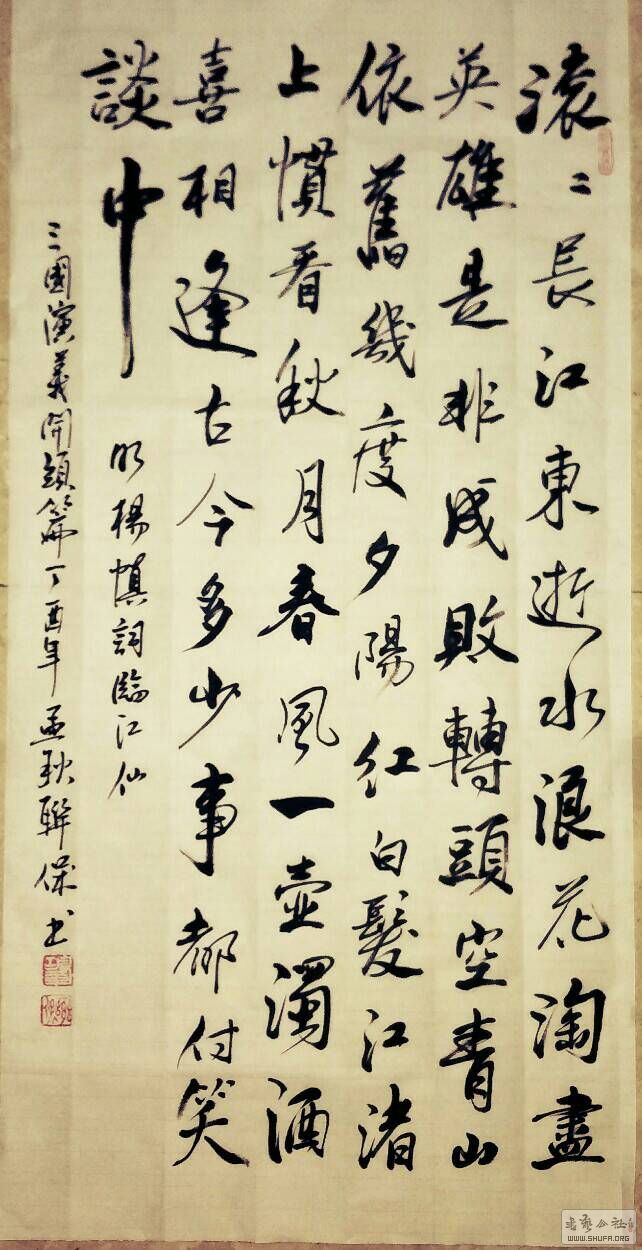 滚〻長江東逝水浪花淘盡
英雄是非成敗轉頭空青山
依舊幾度夕陽紅白髮江渚
上慣看秋月春風一壺濁酒
喜相逢古今多少事都付笑
談中
明楊慎詞臨江仙
三國演義開頭篇丁酉年孟秋聯保书
WWW.SHUFA.ORG